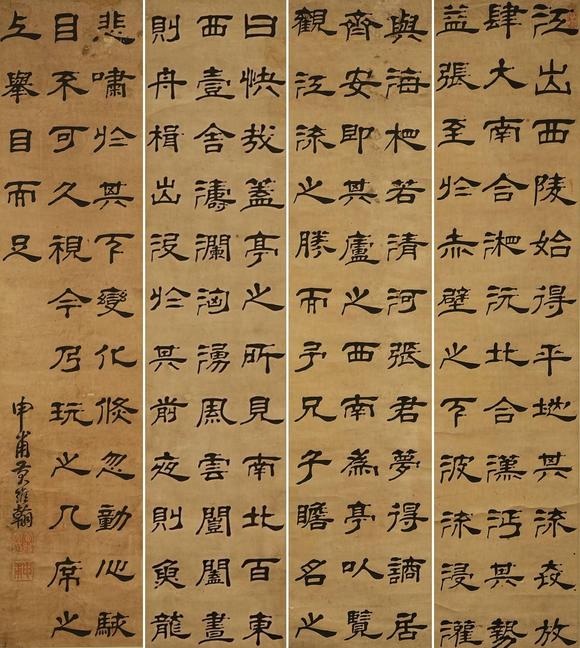 江出西陵始得平地其流奔放
肆大南合湘沅北合漢沔其勢
益張至於赤壁之下波流浸灌
與海相若清河張君夢得謫居
齊安即其廬之西南為亭以覽
觀江流之勝而予兄子瞻名之
曰快哉蓋亭之所見南北百東
西壹舍濤瀾洶湧風雲闓闔晝
則舟楫出沒於其前夜則魚龍
悲嘯於其下變化倏忽動心駭
目不可久視今乃玩之几席之
上舉目而足
申甫黃維翰